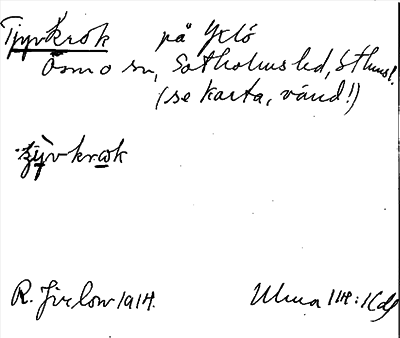 Tjyvkrok på Yxlö
Ösmo sn, Sotholms hd, Sthmsl.
(se karta, vänd!)
R. Jirlow 1914.
Ulma 114:1(d)